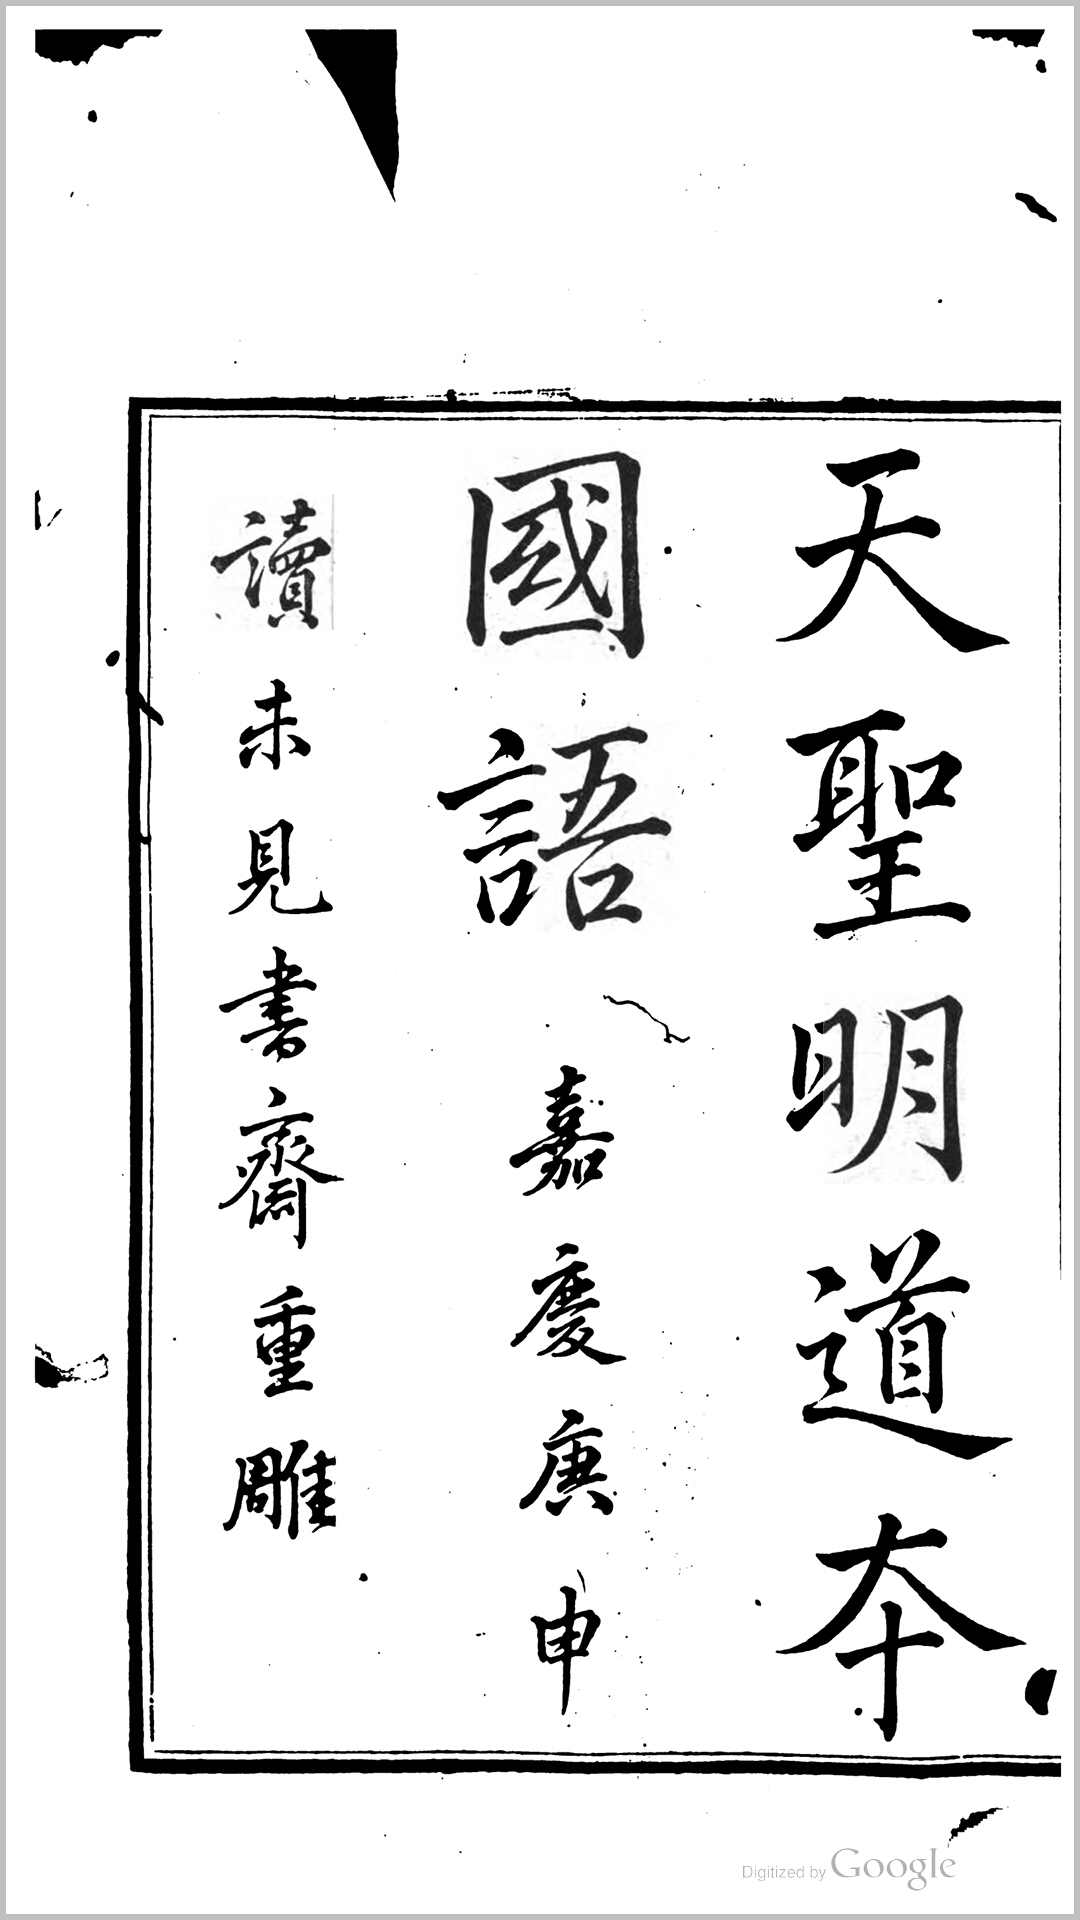 天聖明道本
國語 嘉慶庚申
讀未見書齋重雕
Digitized by Google